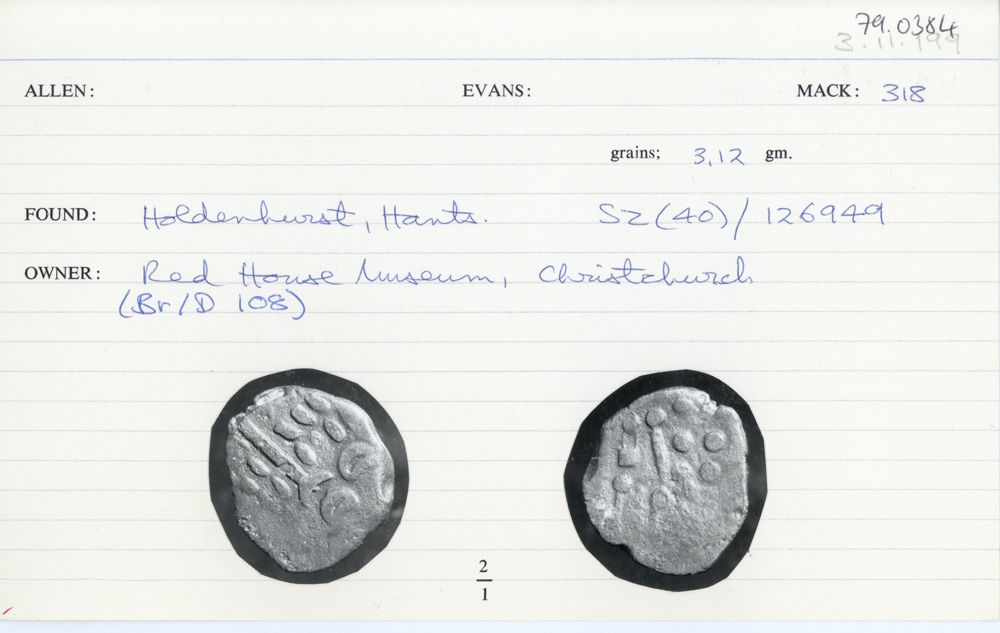 79.0384
3.11.199
ALLEN: EVANS: MACK: 318
grains; 3.12 gm.
FOUND: Holdenhurst, Hants. SZ(40)/126949
OWNER: Red House Museum, Christchurch
(Br/D 108)
2
1